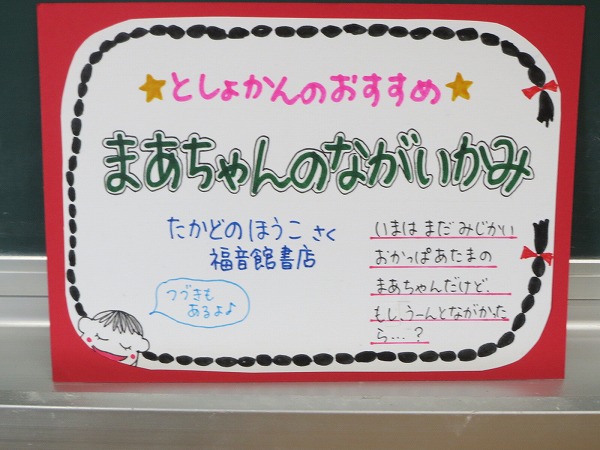 ★としょかんのおすすめ★
まあちゃんのながいかみ
たかどのほうこ さく
福音館書店
いまは まだ みじかい
おかっぱあたまの
まあちゃんだけど、
もし、うーんとながかった
ら…?
つづきも
あるよ♪